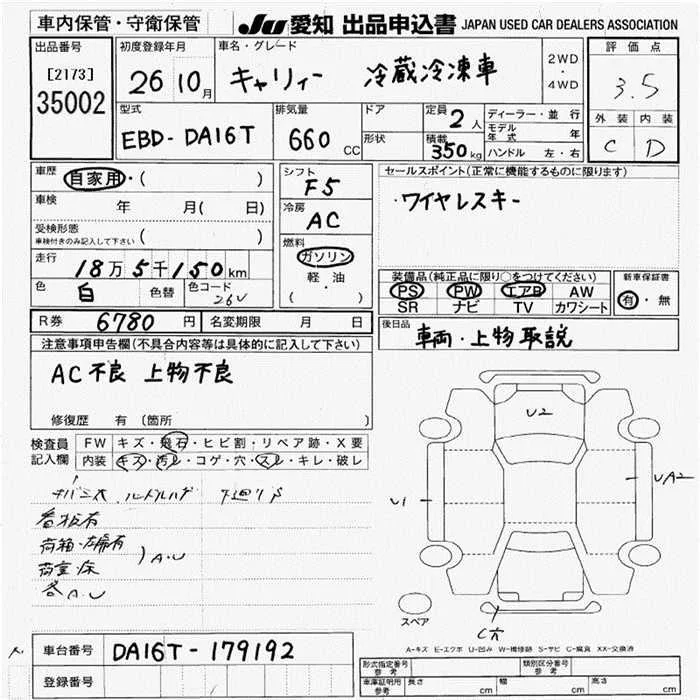 車内保管・守衛保管
JU 愛知 出品申込書 JAPAN USED CAR DEALERS ASSOCIATION
出品番号
[2173]
35002
初度登録年月
26 10月
車名・グレード
キャリィー 冷蔵冷凍車
2WD
・
4WD
評価点
3.5
外装 内装
C D
型式
EBD-DA16T
排気量
660 CC
ドア
形状
定員 2人
積載 350kg
ディーラー・並行
モデル年式 年
ハンドル 左・右
車歴 自家用・( )
車検 年 月( 日)
受検形態
車検付きのみ記入して下さい ( )
走行 18万5千150km
色 白 色替 色コード 26V
シフト
F5
冷房
AC
燃料
ガソリン
軽・油
( )
セールスポイント(正常に機能するものに限ります)
・ワイヤレスキー
装備品(純正品に限り○をつけてください)
PS PW エアB AW
SR ナビ TV カワシート
新車保証書
有・無
R券 6780円 名変期限 月 日
後日品
車両・上物取説
注意事項申告欄(不具合内容等は具体的に記入して下さい)
AC不良 上物不良
修復歴 有 〔箇所
検査員
記入欄
FW キズ・飛石・ヒビ割・リペア跡・X要
内装 キズ・汚レ・コゲ・穴・スレ・キレ・破レ
下廻りS
看板有
荷箱・左扉有
荷室・床
A・U
各A.U
U2
U1
UA2
スペア
C穴
A-キズ E-エクボ U-凹み W-補修跡 S-サビ C-腐食 XX-交換済
車台番号 DA16T-179192
登録番号
形式指定番号
参考
類別区分番号
参考
車庫証明用
参考
長さ cm 幅 cm 高さ cm